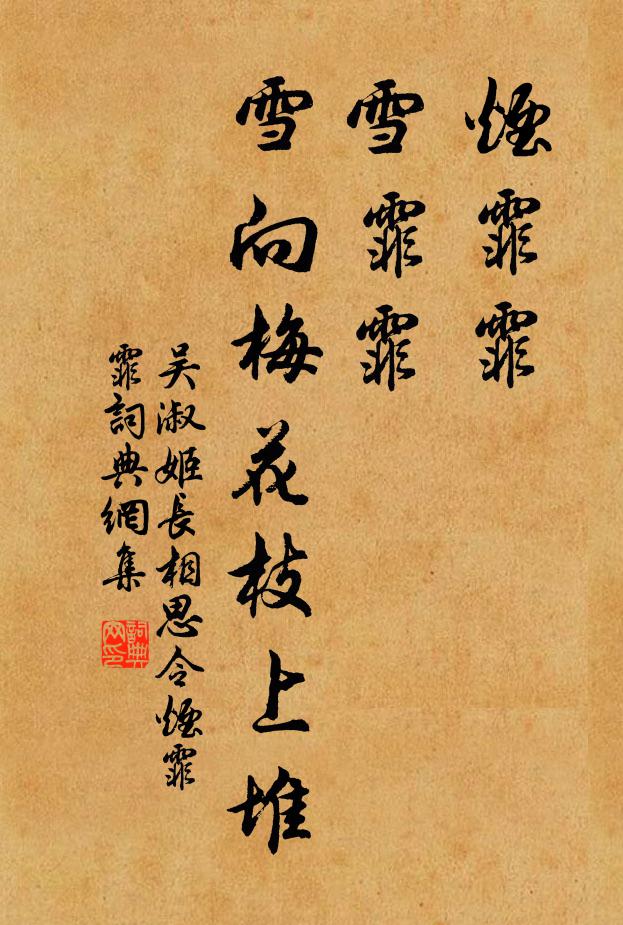 煙霏霏
雪霏霏
雪向梅花枝上堆
吴淑姬長相思令煙霏
霏詞典網集
詞典
网印